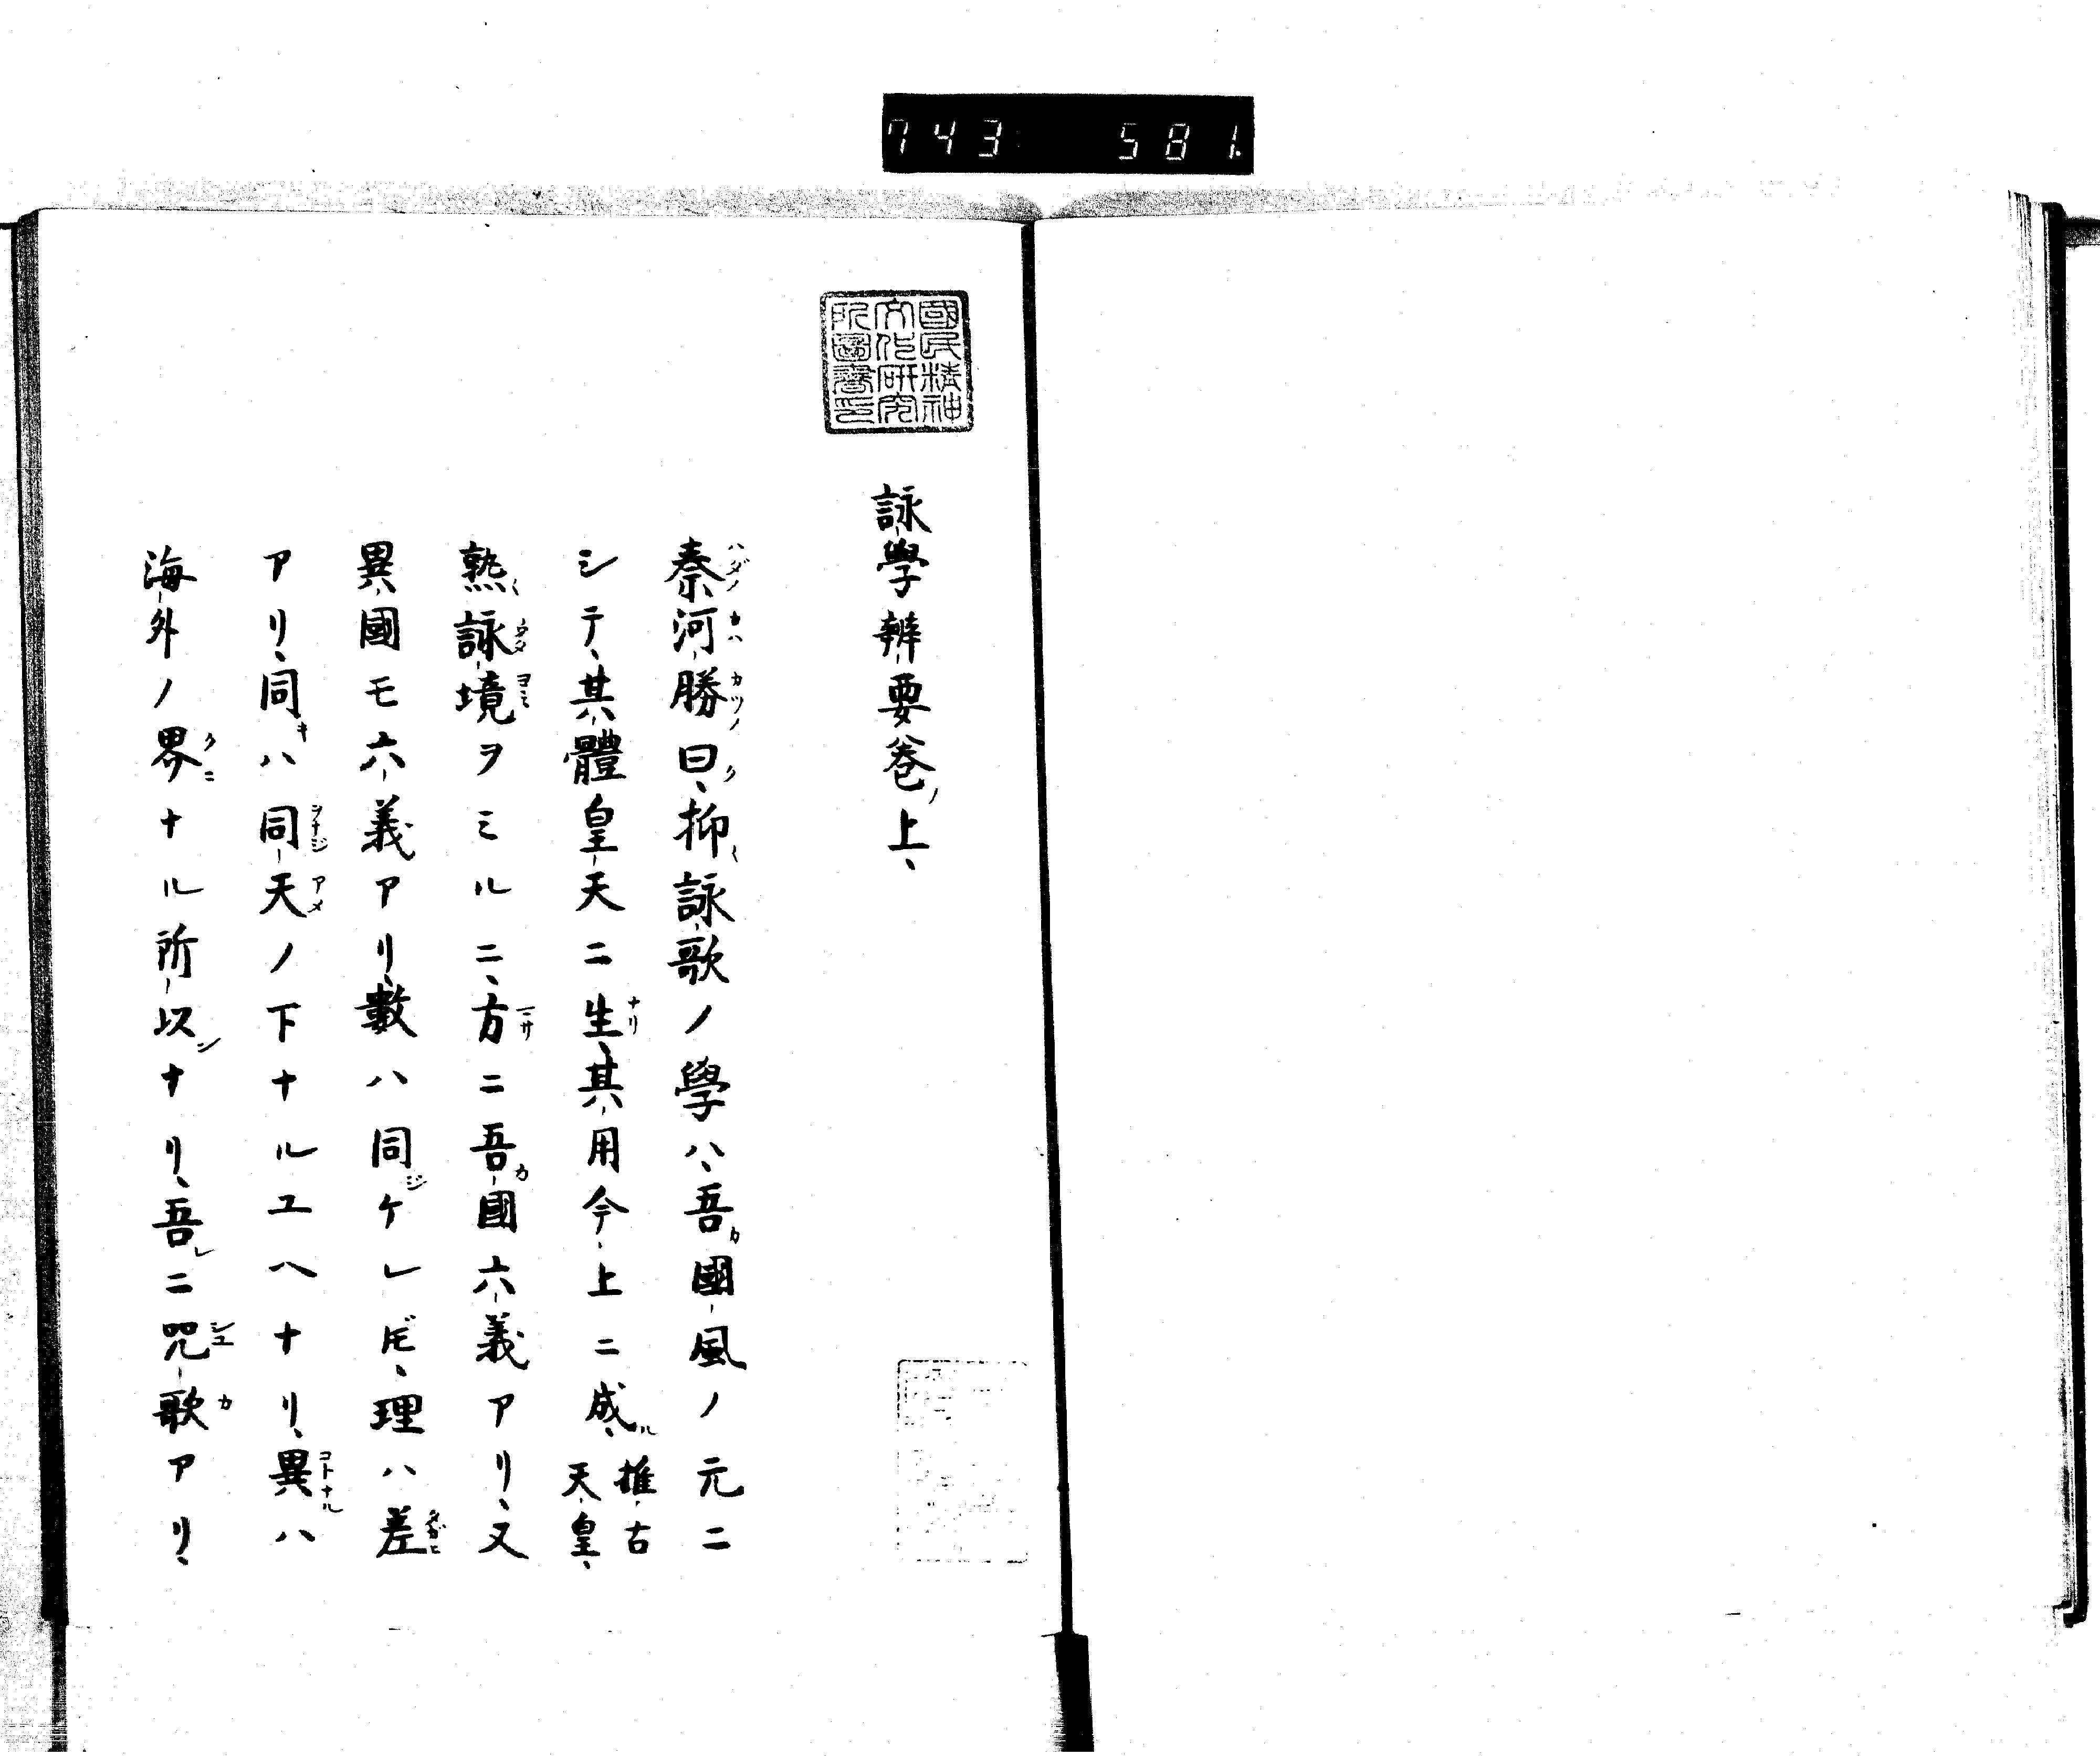 743 581
國民精神
文化研究
所圖書印
詠學辨要卷ノ上、
秦河勝曰、抑詠歌ノ學ハ、吾國風ノ元ニ
シテ、其體皇天ニ生、其用今上ニ成、推古天皇、
熟詠境ヲミルニ、方ニ吾國六義アリ、又
異國モ六義アリ、數ハ同ジケレ𪜈、理ハ差
アリ、同キハ同天ノ下ナルユヘナリ、異ハ
海外ノ界ナル所以ナリ、吾レニ咒歌アリ、